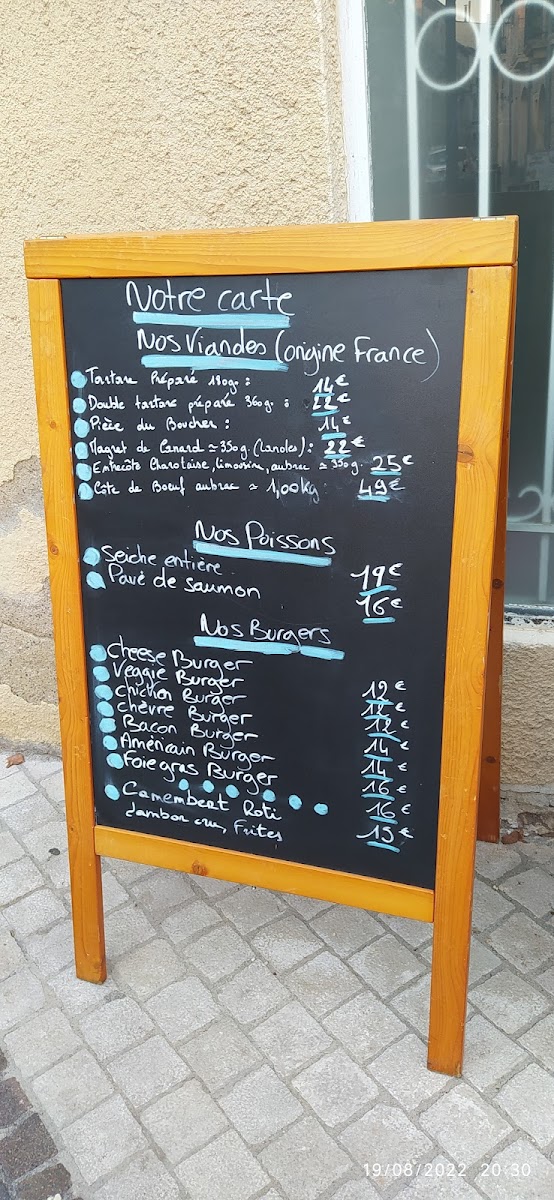 Notre carte
Nos Viandes (origine France)
Tartare Préparé 180g : 14€
Double tartare préparé 360g : 22€
Pièce du Boucher : 14€
Magret de Canard ≃ 350g (Landes) : 22€
Entrecôte Charolaise, limousine, aubrac ≃ 350g 25€
Côte de Boeuf aubrac ≃ 1,00kg 49€
Nos Poissons
Seiche entière 19€
Pavé de saumon 16€
Nos Burgers
Cheese Burger 12€
Veggie Burger 12€
Chicken Burger 12€
Chèvre Burger 14€
Bacon Burger 14€
Américain Burger 16€
Foie gras Burger 16€
Camembeat Roti 15€
Jambon cru, Frites
19/08/2022 20:30